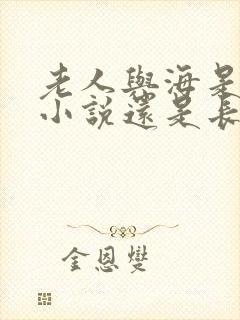 老人與海是
小說還是長
金恩燮